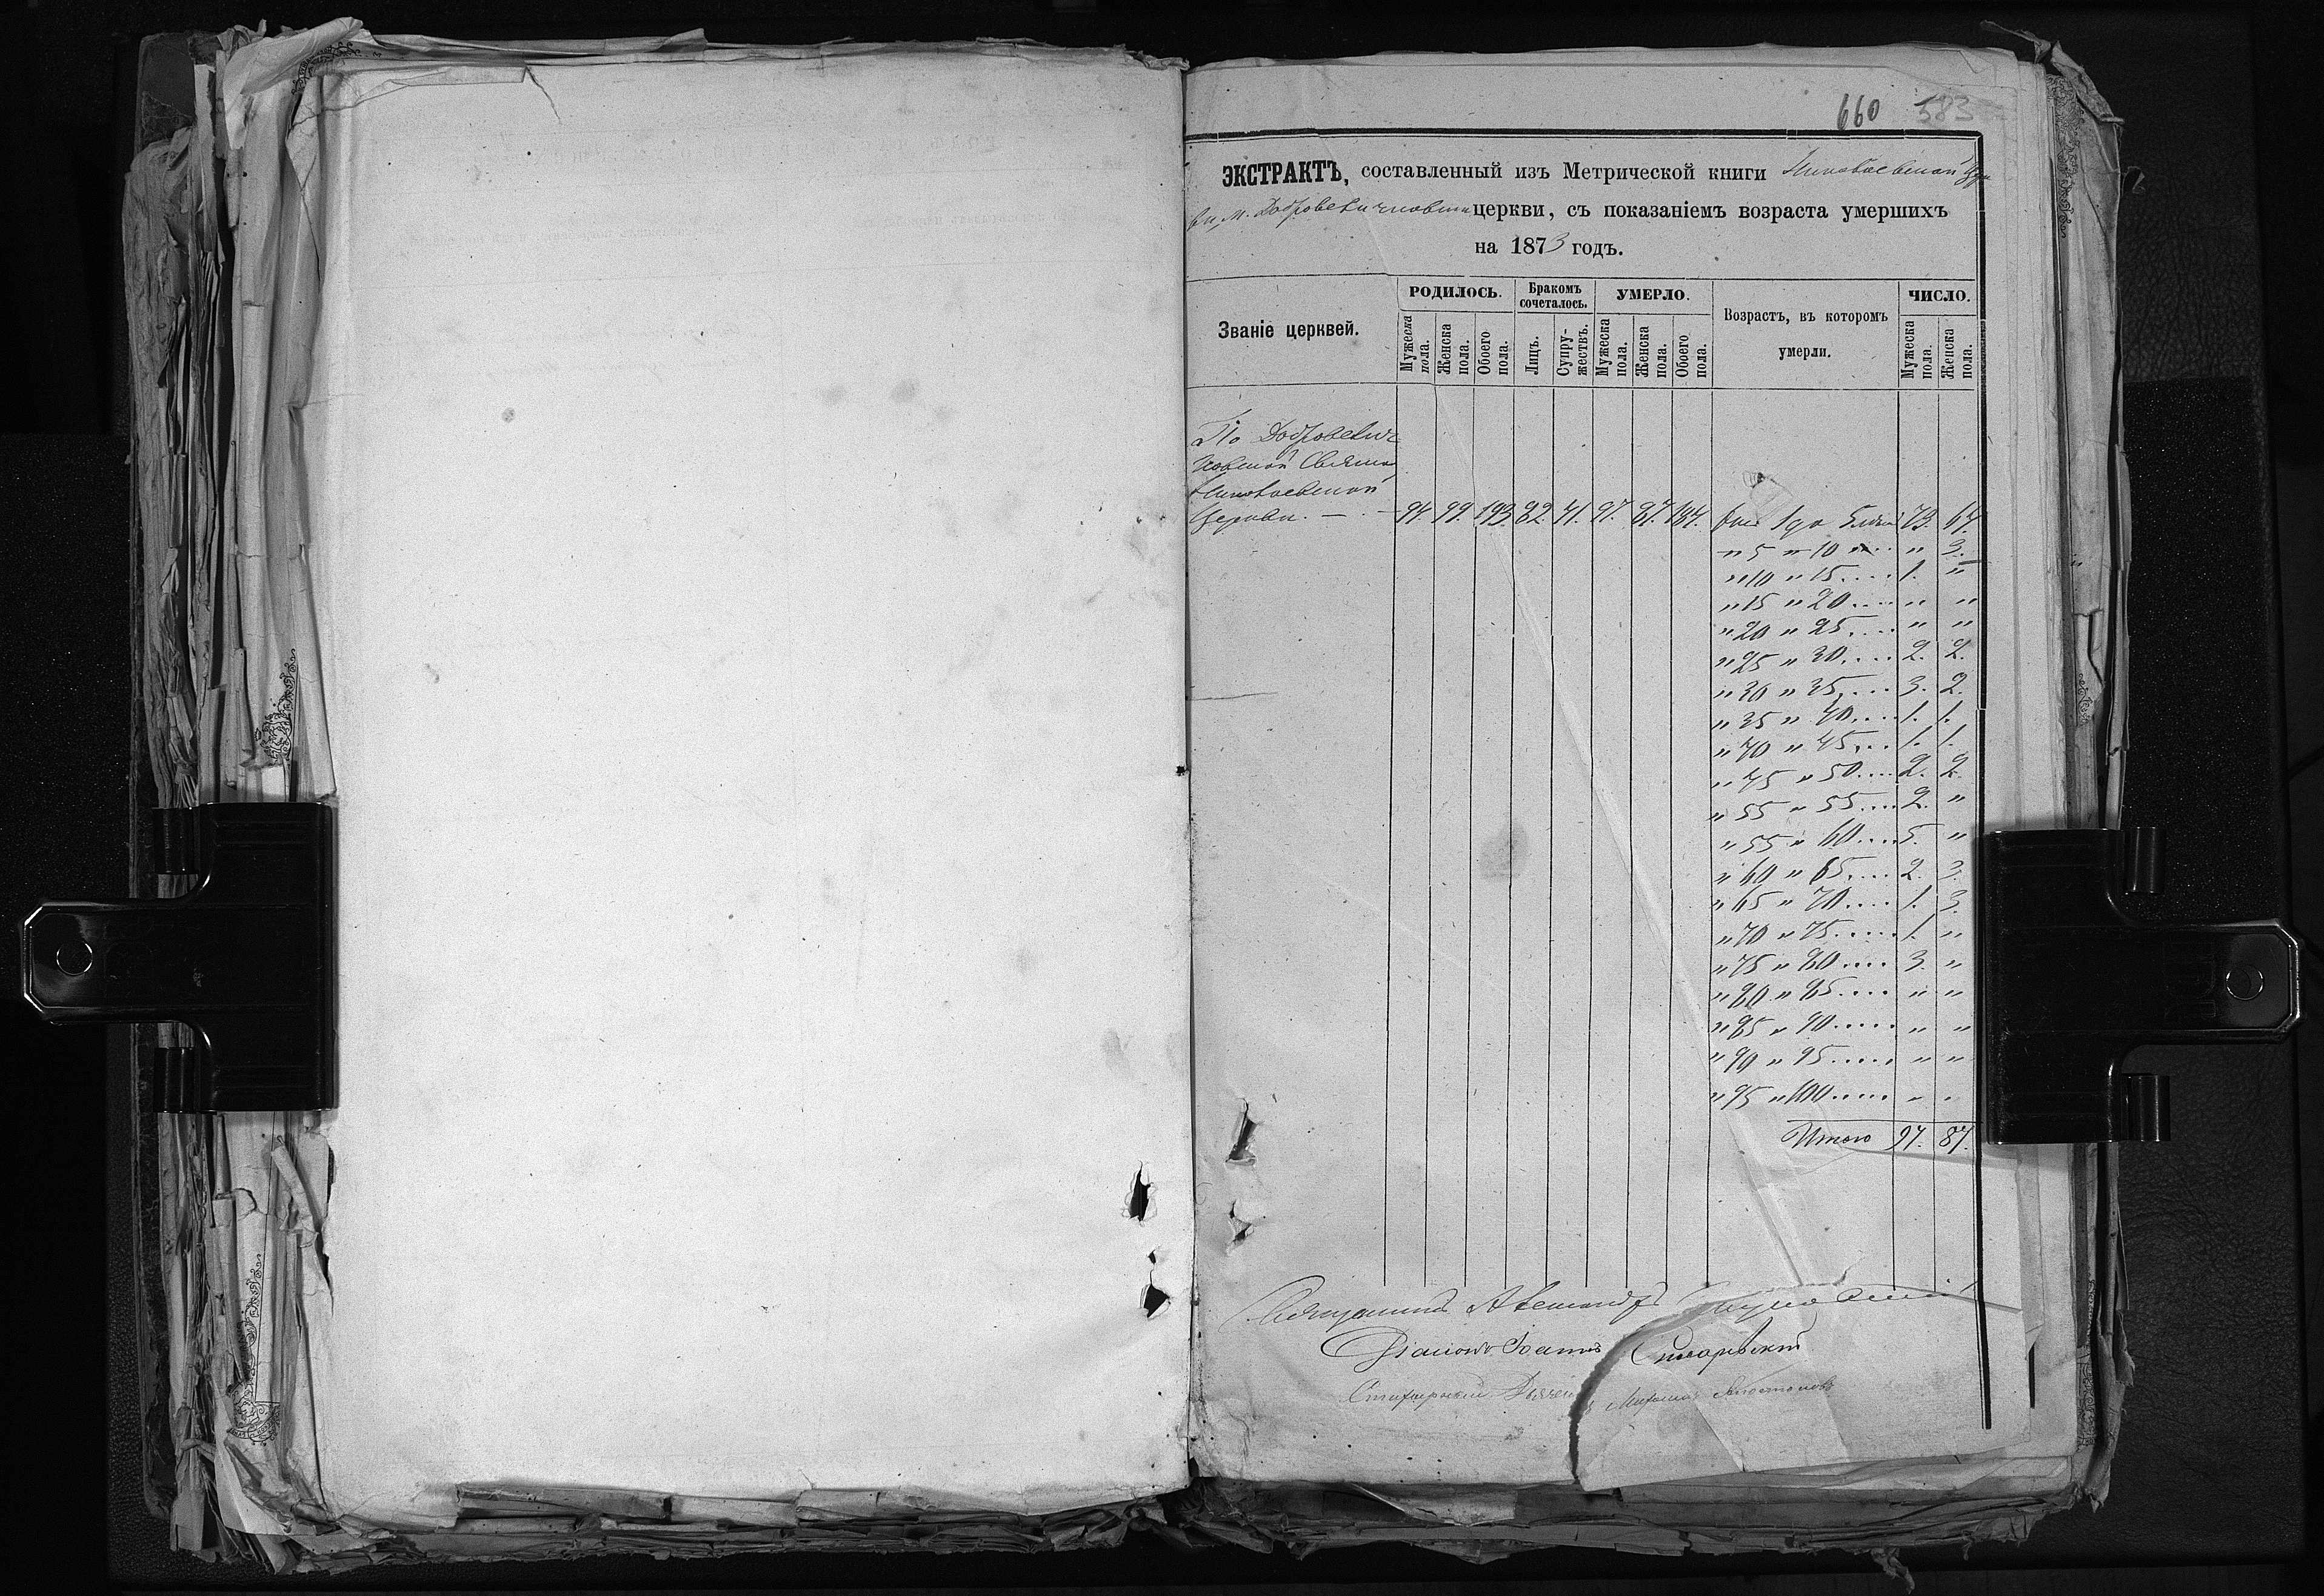 660 583
ЭКСТРАКТЪ, составленный изъ Метрической книги Николаевской Цер
кви, м. Добровеличковки церкви, съ показаніемъ возраста умершихъ
на 1873 годъ.
Званіе церквей.
РОДИЛОСЬ. Бракомъ сочеталось. УМЕРЛО. Возрастъ, въ которомъ умерли. ЧИСЛО.
Мужеска пола. Женска пола. Обоего пола. Лицъ. Супружествъ. Мужеска пола. Женска пола. Обоего пола. Мужеска пола. Женска пола.
По Добровелич
ковской Свято
Николаевской
Церкви. — . — 94. 99. 193. 82. 41. 97. 87. 184. 1 до 5 73. 67.
" 5 " 10 .... " 3.
" 10 " 15 .... 1. "
" 15 " 20 .... " "
" 20 " 25 .... " "
" 25 " 30 .... 2. 2.
" 30 " 35 .... 3. 2.
" 35 " 40 .... 1. 1.
" 40 " 45 .... 1. 1.
" 45 " 50 .... 2. 2.
" 55 " 55 .... 2. "
" 55 " 60 .... 5. "
" 60 " 65 .... 2. 3.
" 65 " 70 .... 1. 3.
" 70 " 75 ..... 1. "
" 75 " 80 .... 3. "
" 80 " 85 .... " "
" 85 " 90 ..... " "
" 90 " 95 ..... " "
" 95 " 100 ..... " "
Итого 97. 87.
Священникъ Александръ
Діаконъ Іоаннъ
Стихарный Дьячекъ